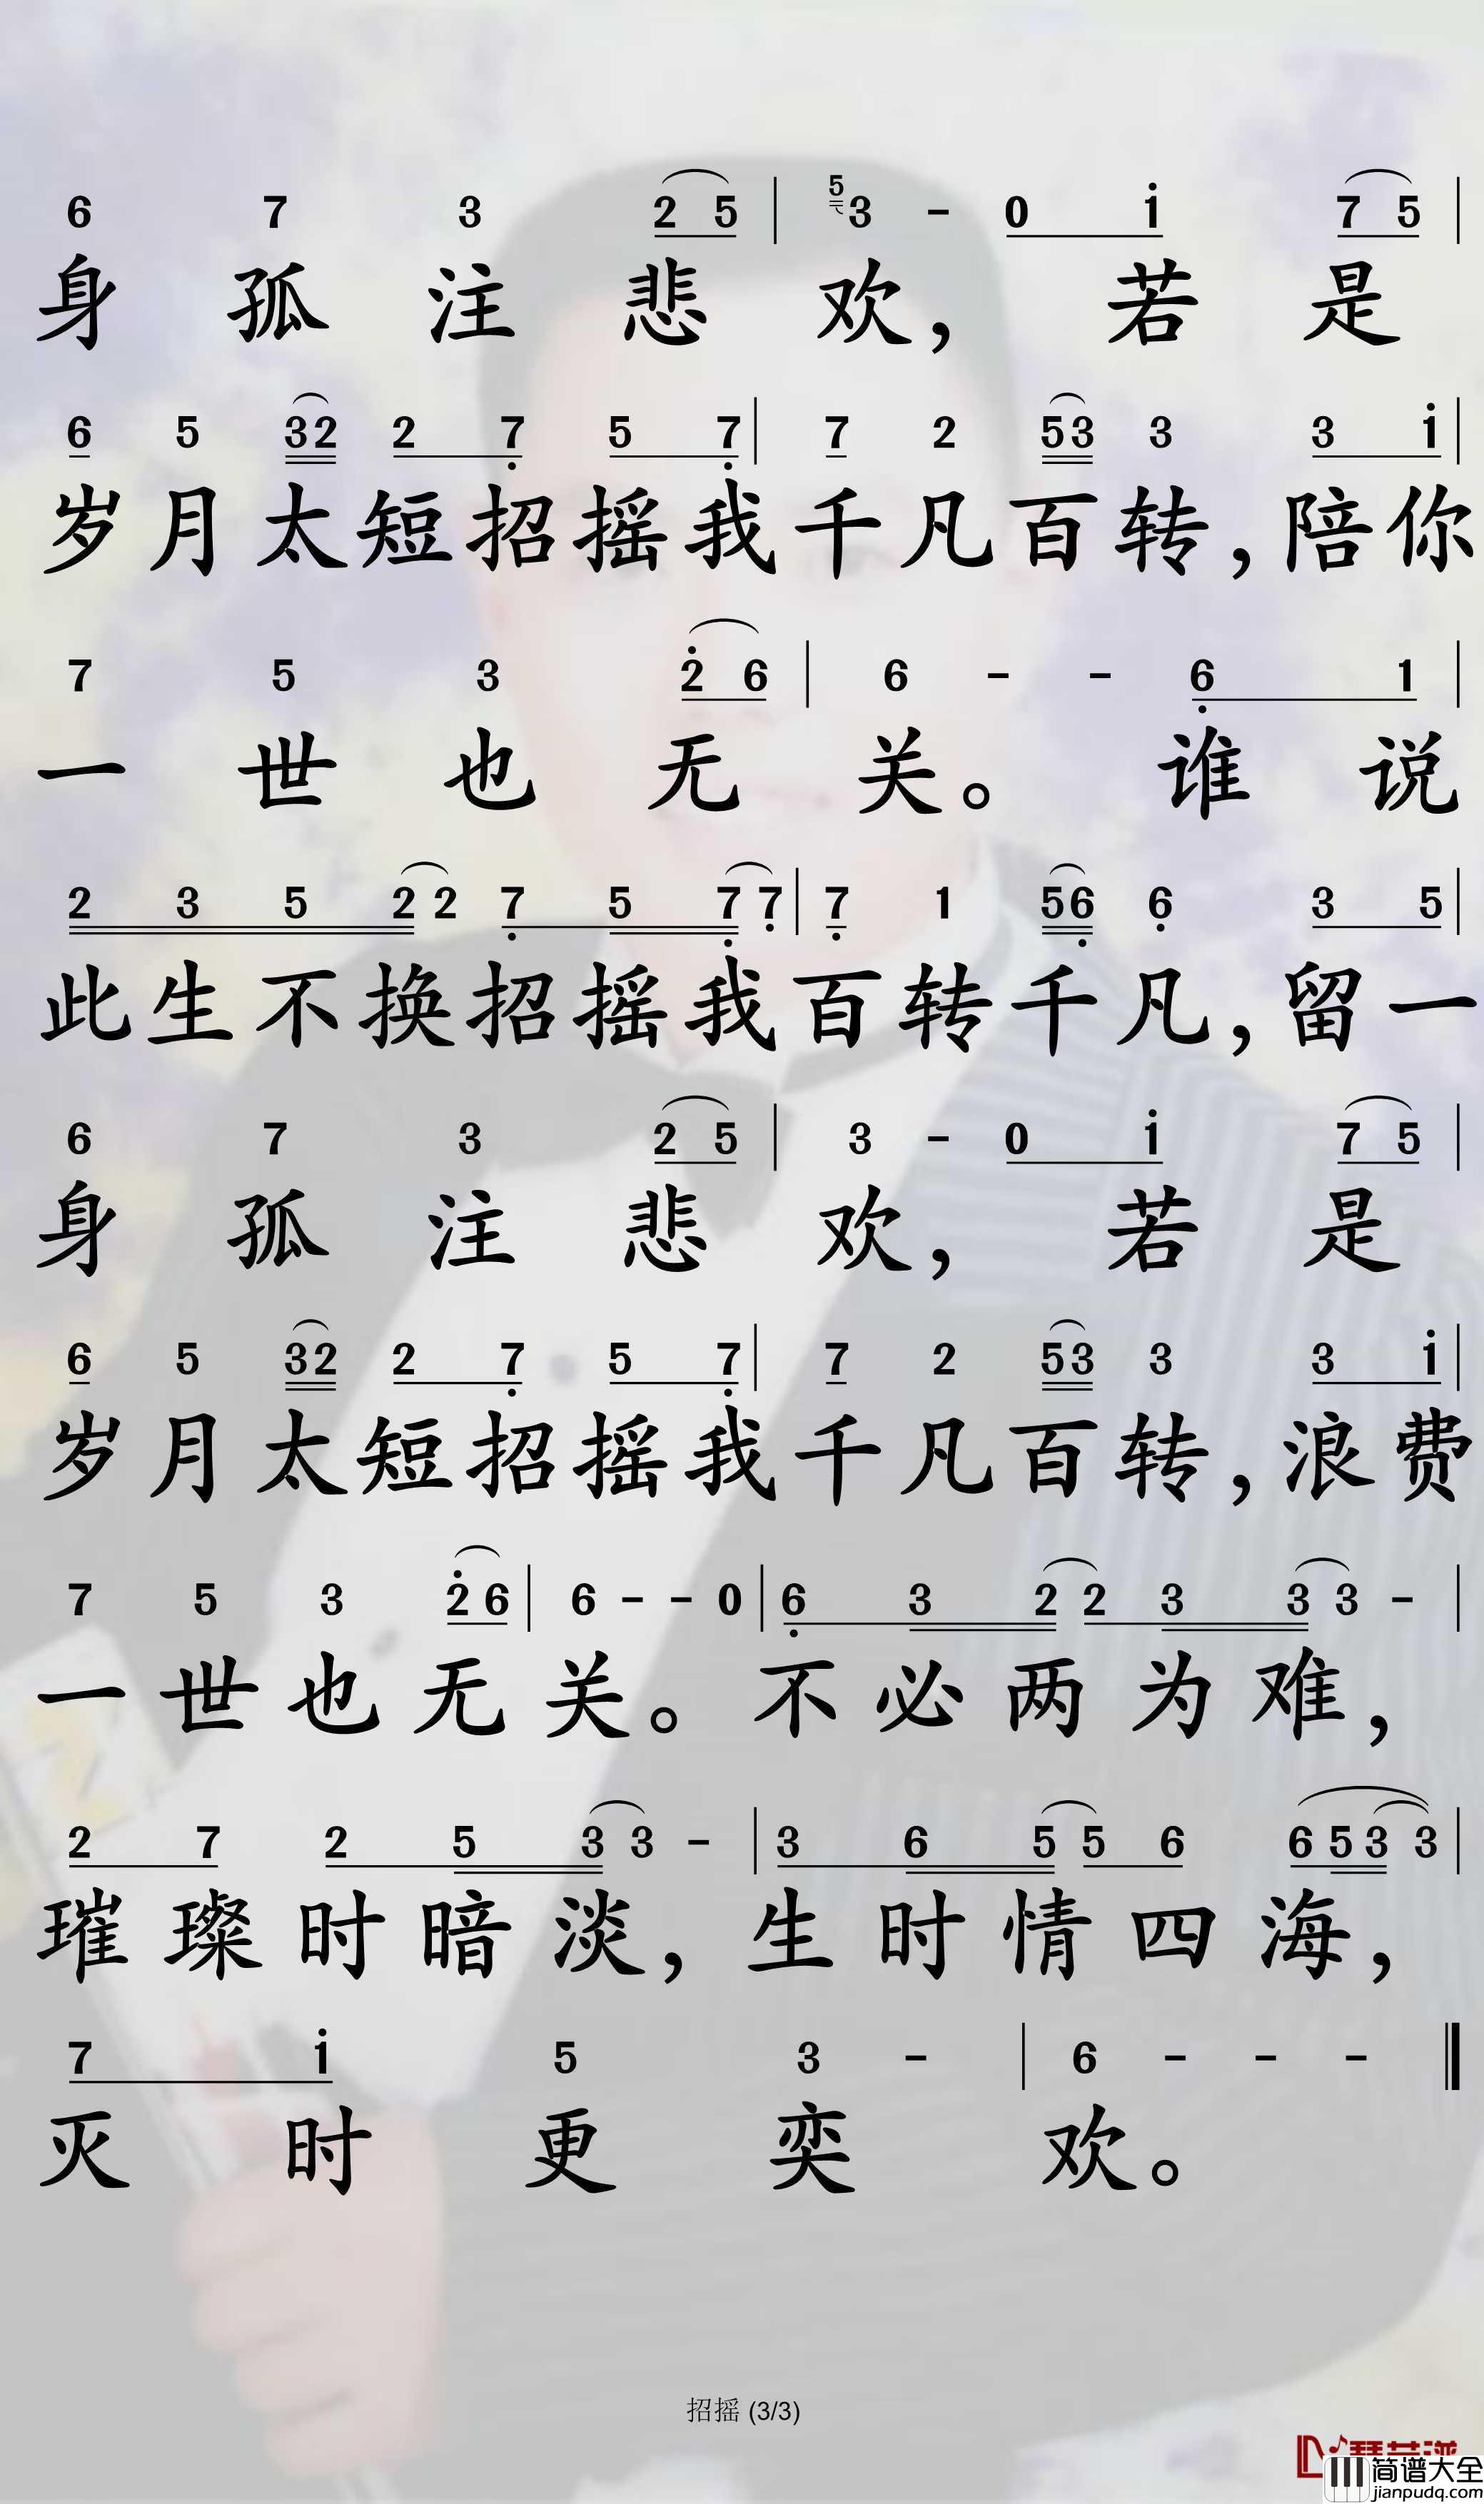 6 7 3 2 5 | 5 3 - 0 i 7 5 |
身 孤 注 悲 欢， 若 是
6 5 3 2 2 7 5 7 | 7 2 5 3 3 3 i |
岁 月 太 短 招 摇 我 千 凡 百 转， 陪 你
7 5 3 2 6 | 6 - - 6 1 |
一 世 也 无 关。 谁 说
2 3 5 2 2 7 5 7 7 | 7 1 5 6 6 3 5 |
此 生 不 换 招 摇 我 百 转 千 凡， 留 一
6 7 3 2 5 | 3 - 0 i 7 5 |
身 孤 注 悲 欢， 若 是
6 5 3 2 2 7 5 7 | 7 2 5 3 3 3 i |
岁 月 太 短 招 摇 我 千 凡 百 转， 浪 费
7 5 3 2 6 | 6 - - 0 | 6 3 2 2 3 3 3 - |
一 世 也 无 关。 不 必 两 为 难，
2 7 2 5 3 3 - | 3 6 5 5 6 6 5 3 3 |
璀 璨 时 暗 淡， 生 时 情 四 海，
7 i 5 3 - | 6 - - - ‖
灭 时 更 奕 欢。
招摇 (3/3)
简谱大全
jianpudq.com